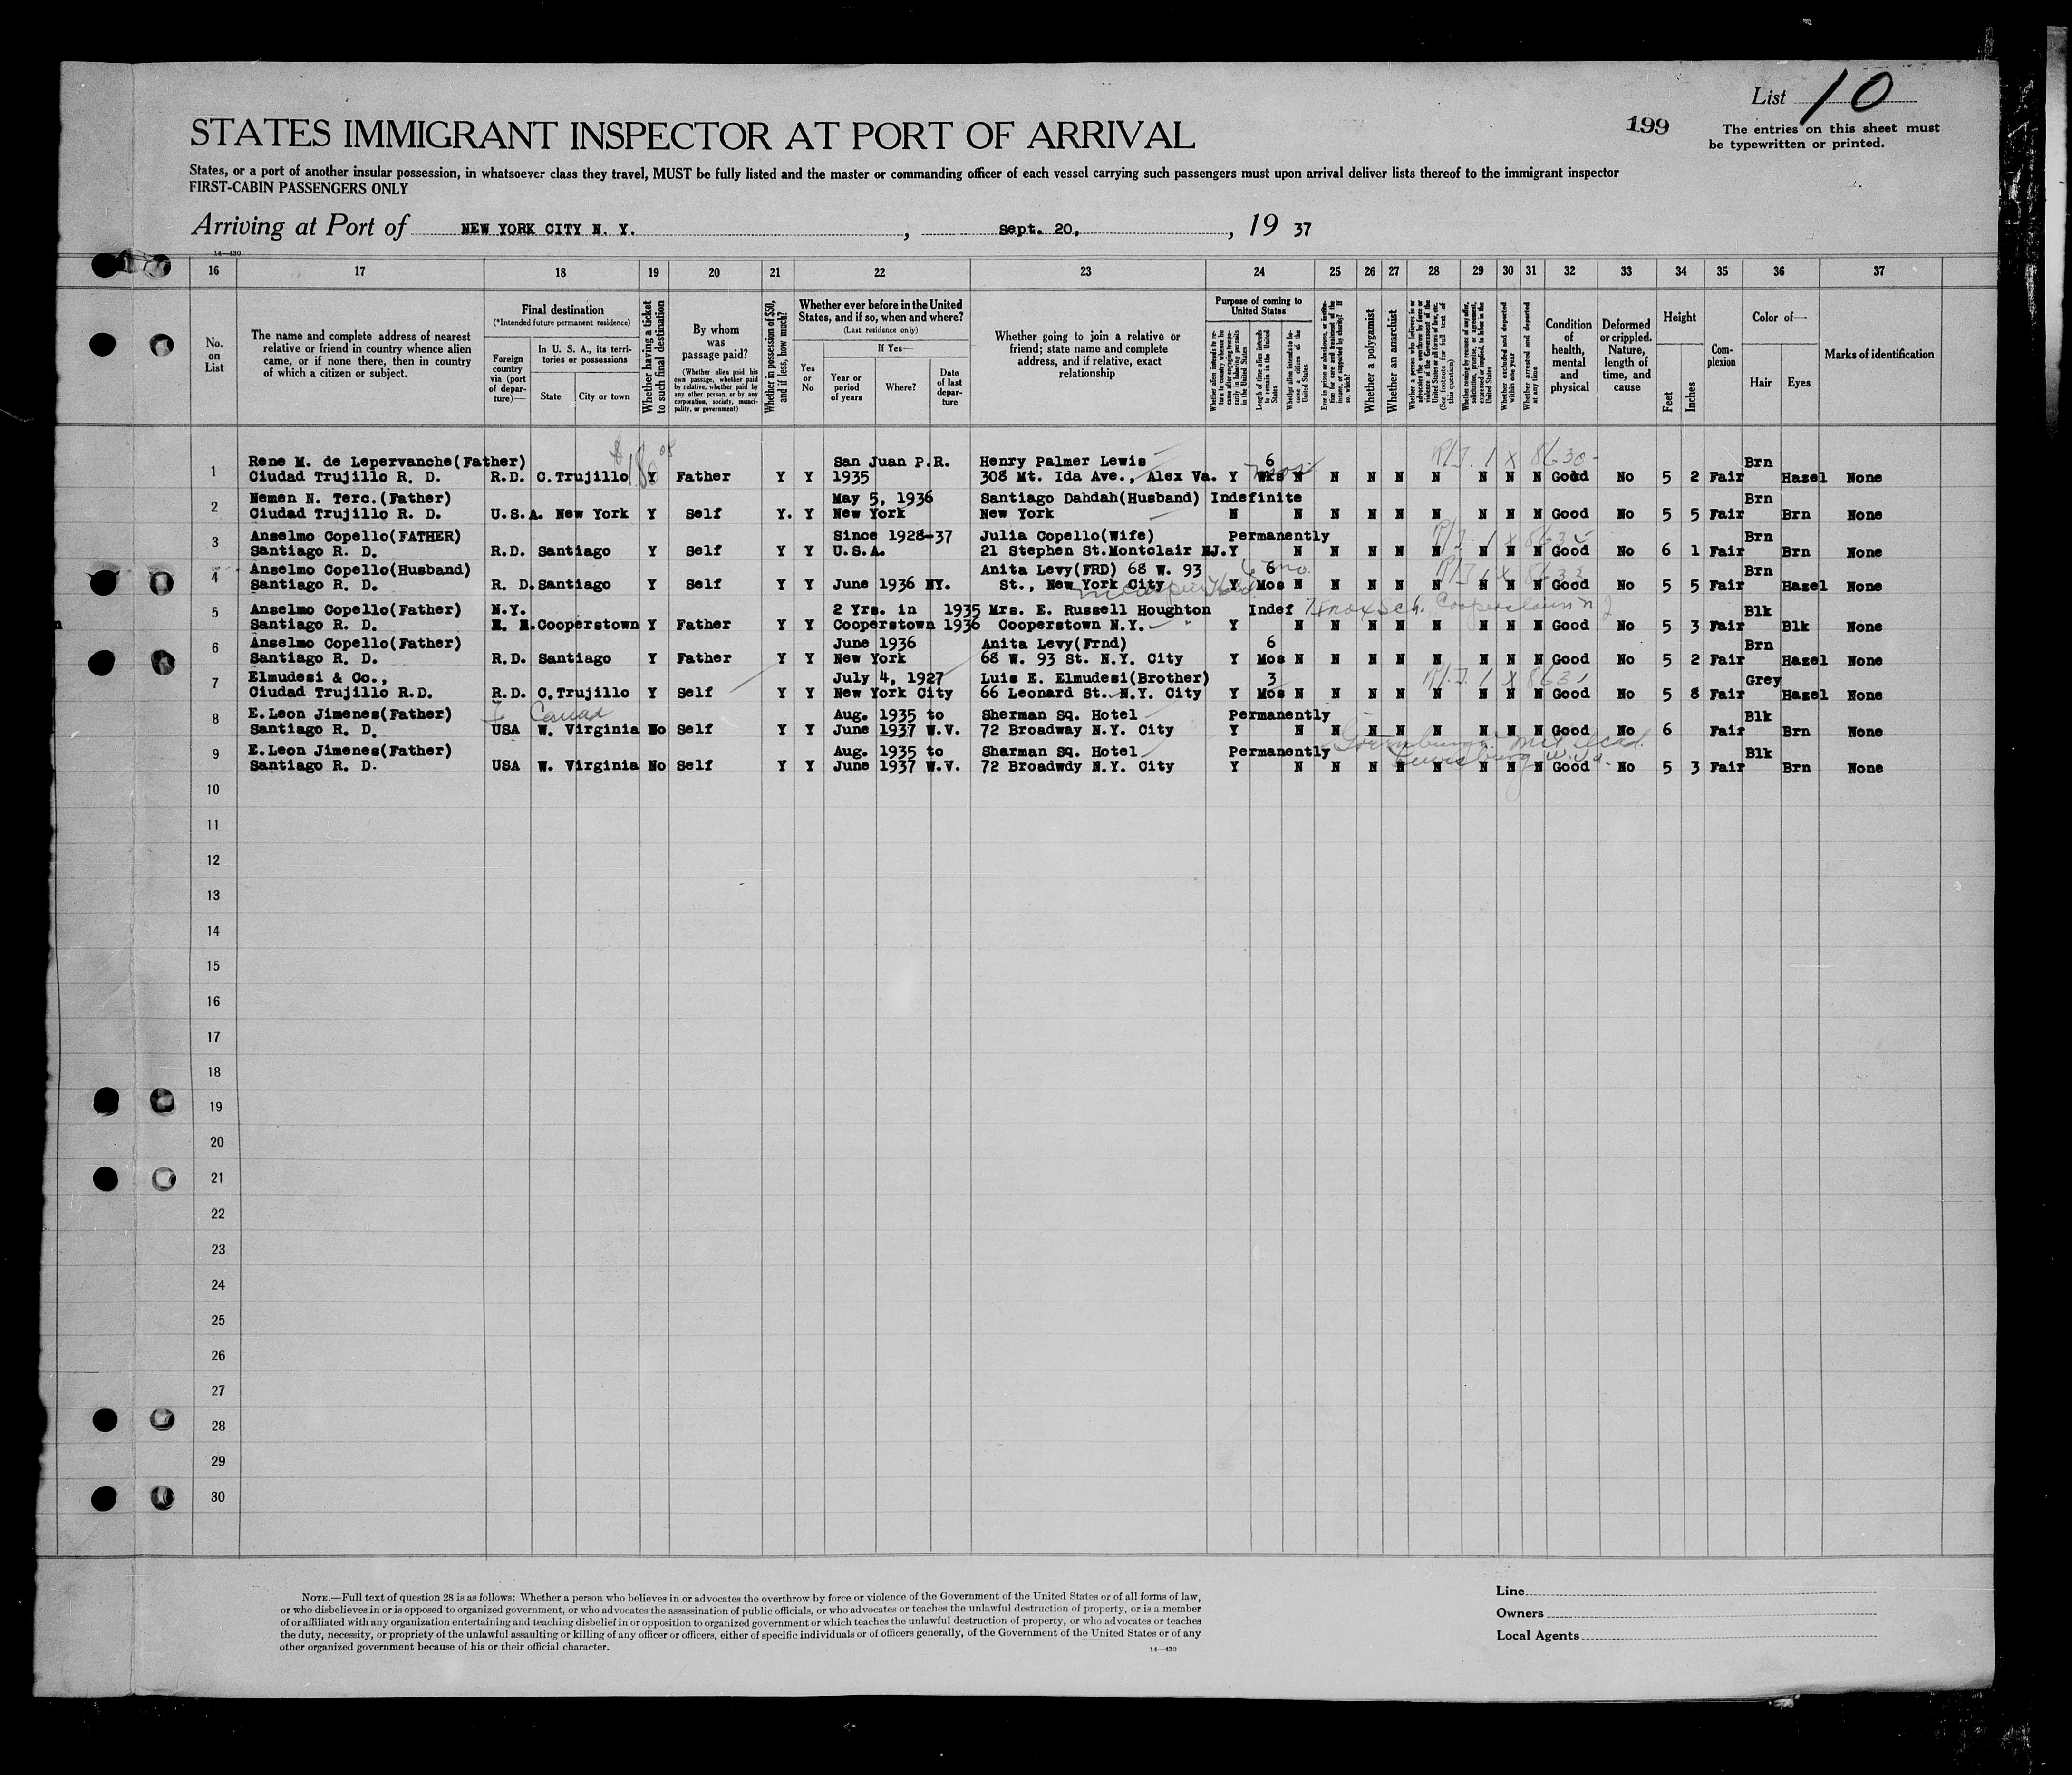 List 10
199
The entries on this sheet must
be typewritten or printed.
STATES IMMIGRANT INSPECTOR AT PORT OF ARRIVAL
States, or a port of another insular possession, in whatsoever class they travel, MUST be fully listed and the master or commanding officer of each vessel carrying such passengers must upon arrival deliver lists thereof to the immigrant inspector
FIRST-CABIN PASSENGERS ONLY
Arriving at Port of NEW YORK CITY N. Y. , Sept. 20, , 19 37
14—430
16 17 18 19 20 21 22 23 24 25 26 27 28 29 30 31 32 33 34 35 36 37
No. on List
The name and complete address of nearest relative or friend in country whence alien came, or if none there, then in country of which a citizen or subject.
Final destination
(*Intended future permanent residence)
Foreign country via (port of departure)—
In U. S. A., its territories or possessions
State
City or town
Whether having a ticket to such final destination
By whom was passage paid?
(Whether alien paid his own passage, whether paid by relative, whether paid by any other person, or by any corporation, society, municipality, or government)
Whether in possession of $50, and if less, how much?
Whether ever before in the United States, and if so, when and where?
(Last residence only)
Yes or No
If Yes—
Year or period of years
Where?
Date of last departure
Whether going to join a relative or friend; state name and complete address, and if relative, exact relationship
Purpose of coming to United States
Length of time alien intends to remain in the United States
Whether alien intends to become a citizen of the United States
Whether a polygamist
Whether an anarchist
Whether excluded and deported within one year
Whether arrested and deported at any time
Condition of health, mental and physical
Deformed or crippled. Nature, length of time, and cause
Height
Feet
Inches
Complexion
Color of—
Hair
Eyes
Marks of identification
Rene M. de Lepervanche(Father) San Juan P.R. Henry Palmer Lewis 6 Brn
1 Ciudad Trujillo R. D. R.D. C.Trujillo Y Father Y Y 1935 308 Mt. Ida Ave., Alex Va. Y Wks N N N N N N N N Good No 5 2 Fair Hazel None
Nemen N. Terc.(Father) May 5, 1936 Santiago Dahdah(Husband) Indefinite Brn
2 Ciudad Trujillo R. D. U.S.A. New York Y Self Y. Y New York New York N N N N N N N N N Good No 5 5 Fair Brn None
Anselmo Copello(FATHER) Since 1928-37 Julia Copello(Wife) Permanently Brn
3 Santiago R. D. R.D. Santiago Y Self Y Y U.S.A. 21 Stephen St.Montclair NJ. Y N N N N N N N N Good No 6 1 Fair Brn None
Anselmo Copello(Husband) Anita Levy(FRD) 68 W. 93 6 Brn
4 Santiago R. D. R. D. Santiago Y Self Y Y June 1936 NY. St., New York City Y Mos N N N N N N N N Good No 5 5 Fair Hazel None
Anselmo Copello(Father) N.Y. 2 Yrs. in 1935 Mrs. E. Russell Houghton Indef Knox Sch. Cooperstown Blk
5 Santiago R. D. Cooperstown Y Father Y Y Cooperstown 1936 Cooperstown N.Y. Y N N N N N N N N Good No 5 3 Fair Blk None
Anselmo Copello(Father) June 1936 Anita Levy(Frnd) 6 Brn
6 Santiago R. D. R.D. Santiago Y Father Y Y New York 68 W. 93 St. N.Y. City Y Mos N N N N N N N N Good No 5 2 Fair Hazel None
Elmudesi & Co., July 4, 1927 Luis E. Elmudesi(Brother) 3 Grey
7 Ciudad Trujillo R.D. R.D. C.Trujillo Y Self Y Y New York City 66 Leonard St. N.Y. City Y Mos N N N N N N N N Good No 5 8 Fair Hazel None
E.Leon Jimenes(Father) Aug. 1935 to Sherman Sq. Hotel Permanently Blk
8 Santiago R. D. USA W. Virginia No Self Y Y June 1937 W.V. 72 Broadway N.Y. City Y N N N N N N N N Good No 6 Fair Brn None
E.Leon Jimenes(Father) Aug. 1935 to Sharman Sq. Hotel Permanently Blk
9 Santiago R. D. USA W. Virginia No Self Y Y June 1937 W.V. 72 Broadwdy N.Y. City Y N N N N N N N N Good No 5 3 Fair Brn None
10
11
12
13
14
15
16
17
18
19
20
21
22
23
24
25
26
27
28
29
30
NOTE.—Full text of question 28 is as follows: Whether a person who believes in or advocates the overthrow by force or violence of the Government of the United States or of all forms of law,
or who disbelieves in or is opposed to organized government, or who advocates the assassination of public officials, or who advocates or teaches the unlawful destruction of property, or is a member
of or affiliated with any organization entertaining and teaching disbelief in or opposition to organized government or which teaches the unlawful destruction of property, or who advocates or teaches
the duty, necessity, or propriety of the unlawful assaulting or killing of any officer or officers, either of specific individuals or of officers generally, of the Government of the United States or of any
other organized government because of his or their official character.
14—430
Line
Owners
Local Agents